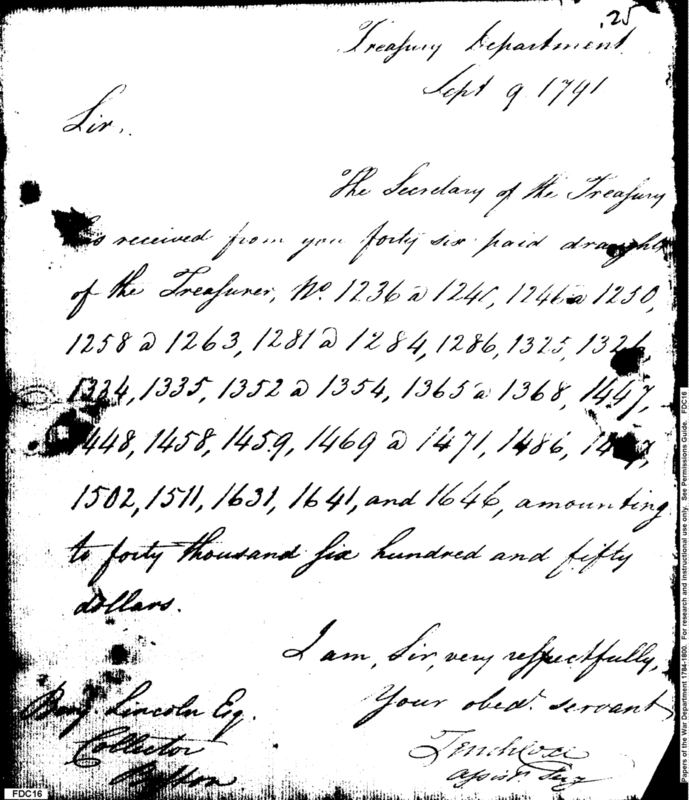 .25
Treasury Department
Sept 9 1791
Sir,
The Secretary of the Treasury
has received from you forty six paid draughts
of the Treasurer, No. 1236 a 1241, 1246 a 1250,
1258 a 1263, 1281 a 1284, 1286, 1325,
1334, 1335, 1352 a 1354, 1365 a 1368, 1447,
1448, 1458, 1459, 1469 a 1471, 1486,
1502, 1511, 1631, 1641, and 1646, amounting
to forty thousand six hundred and fifty
dollars.
I am, Sir, very respectfully,
Your obedt. servant
Tench Coxe
Assist. Secy
Benj. Lincoln Esq.
Collector
Boston
FDC16
Papers of the War Department 1784-1800. For research and instructional use only. See Permissions Guide. FDC16